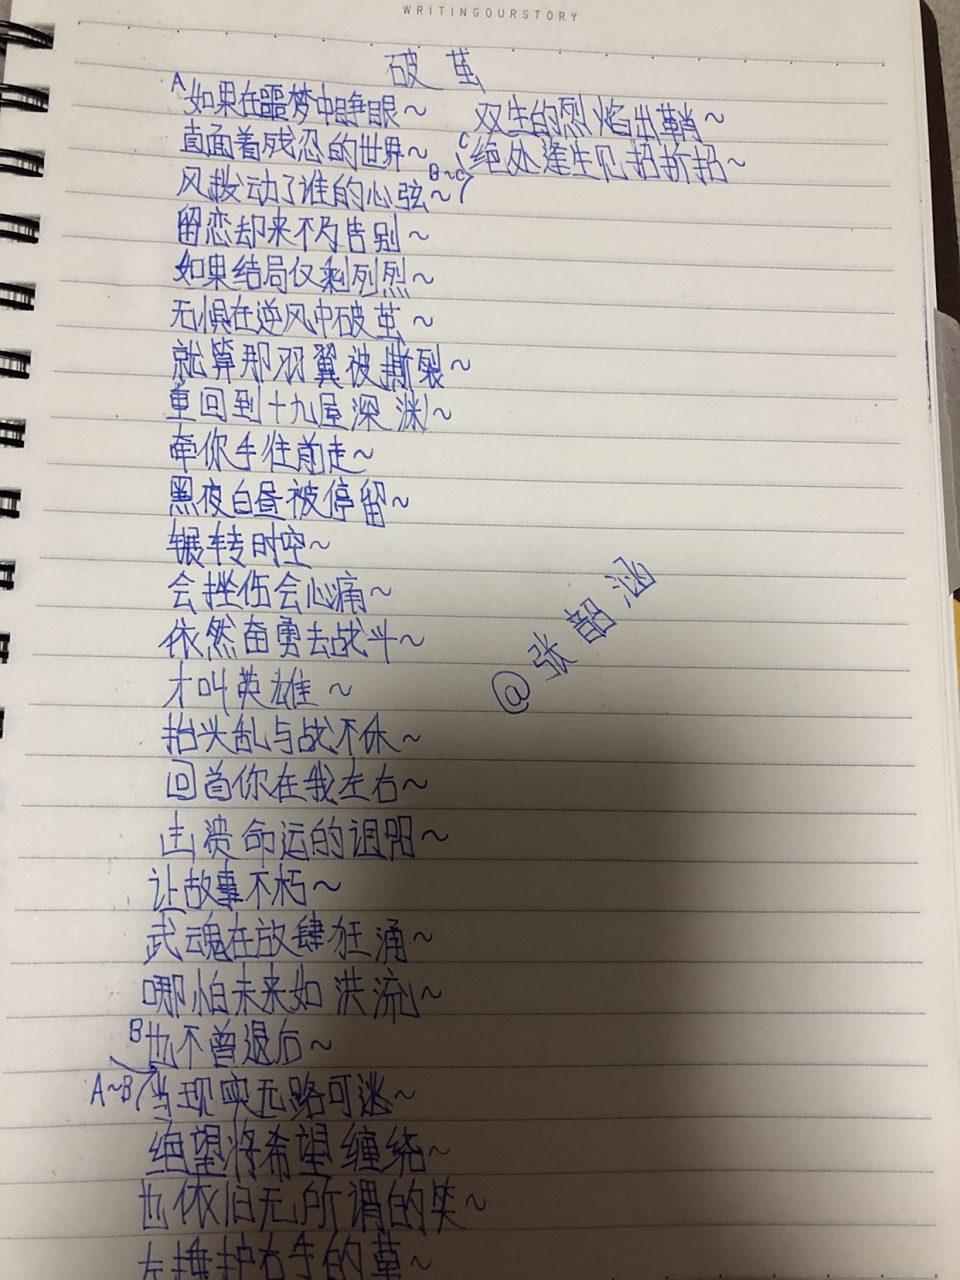 WRITINGOURSTORY
破茧
A如果在噩梦中睁眼~
直面着残忍的世界~
风拨动了谁的心弦~
留恋却来不及告别~
如果结局仅剩列烈~
无惧在逆风中破茧~
就算那羽翼被撕裂~
重回到十九层深渊~
牵你手往前走~
黑夜白昼被停留~
辗转时空~
会挫伤会心痛~
依然奋勇去战斗~
才叫英雄~
抬头乱与战不休~
回首你在我左右~
击溃命运的诅咒~
让故事不朽~
武魂在放肆狂涌~
哪怕未来如洪流~
B也不曾退后~
A~B当现实无路可逃~
绝望将希望缠绕~
也依旧无所谓的笑~
左锤护右手的草~
B~C
双生的烈焰出鞘~
C绝处逢生见招折招~
@张韶涵